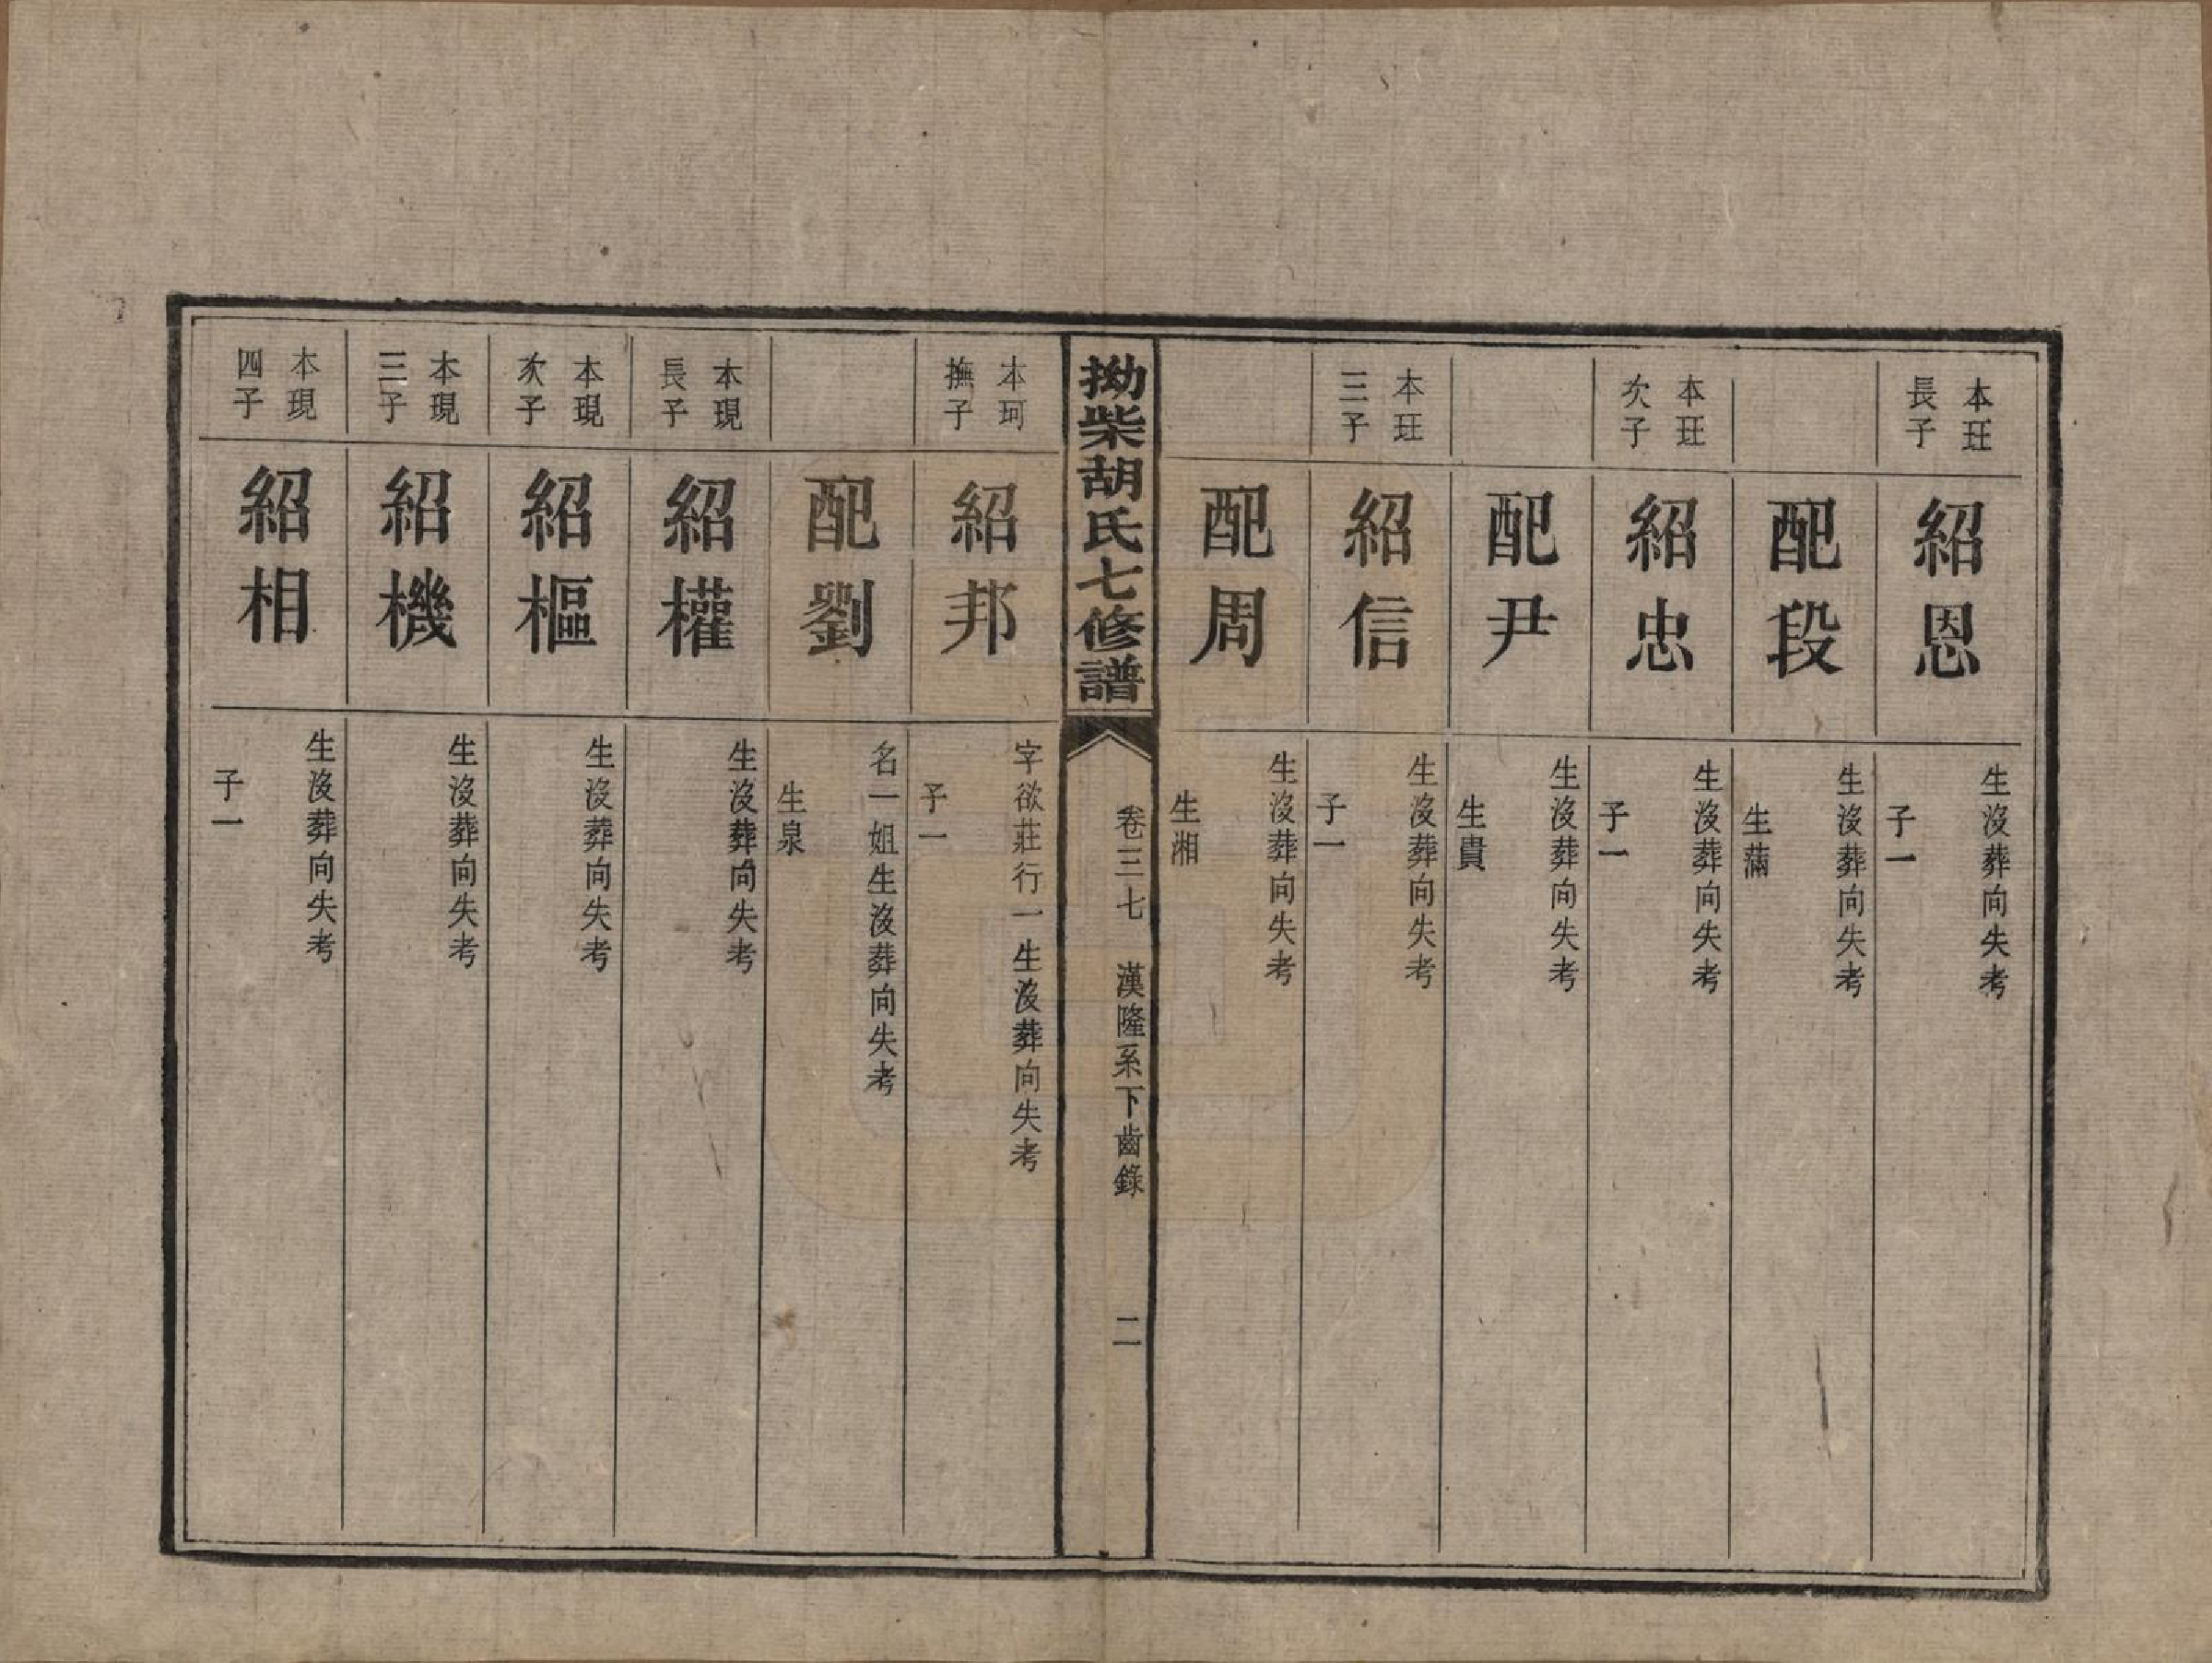 本玨
長子
紹恩
生沒葬向失考
子一
配段
生沒葬向失考
生滿
本玨
次子
紹忠
生沒葬向失考
子一
配尹
生沒葬向失考
生貴
本玨
三子
紹信
生沒葬向失考
子一
配周
生沒葬向失考
生湘
拗柴胡氏七修譜
卷三七
漢隆系下齒錄
二
本珂
撫子
紹邦
字欲莊行一生沒葬向失考
子一
配劉
名一姐生沒葬向失考
生泉
本現
長子
紹權
生沒葬向失考
本現
次子
紹樞
生沒葬向失考
本現
三子
紹機
生沒葬向失考
本現
四子
紹相
生沒葬向失考
子一